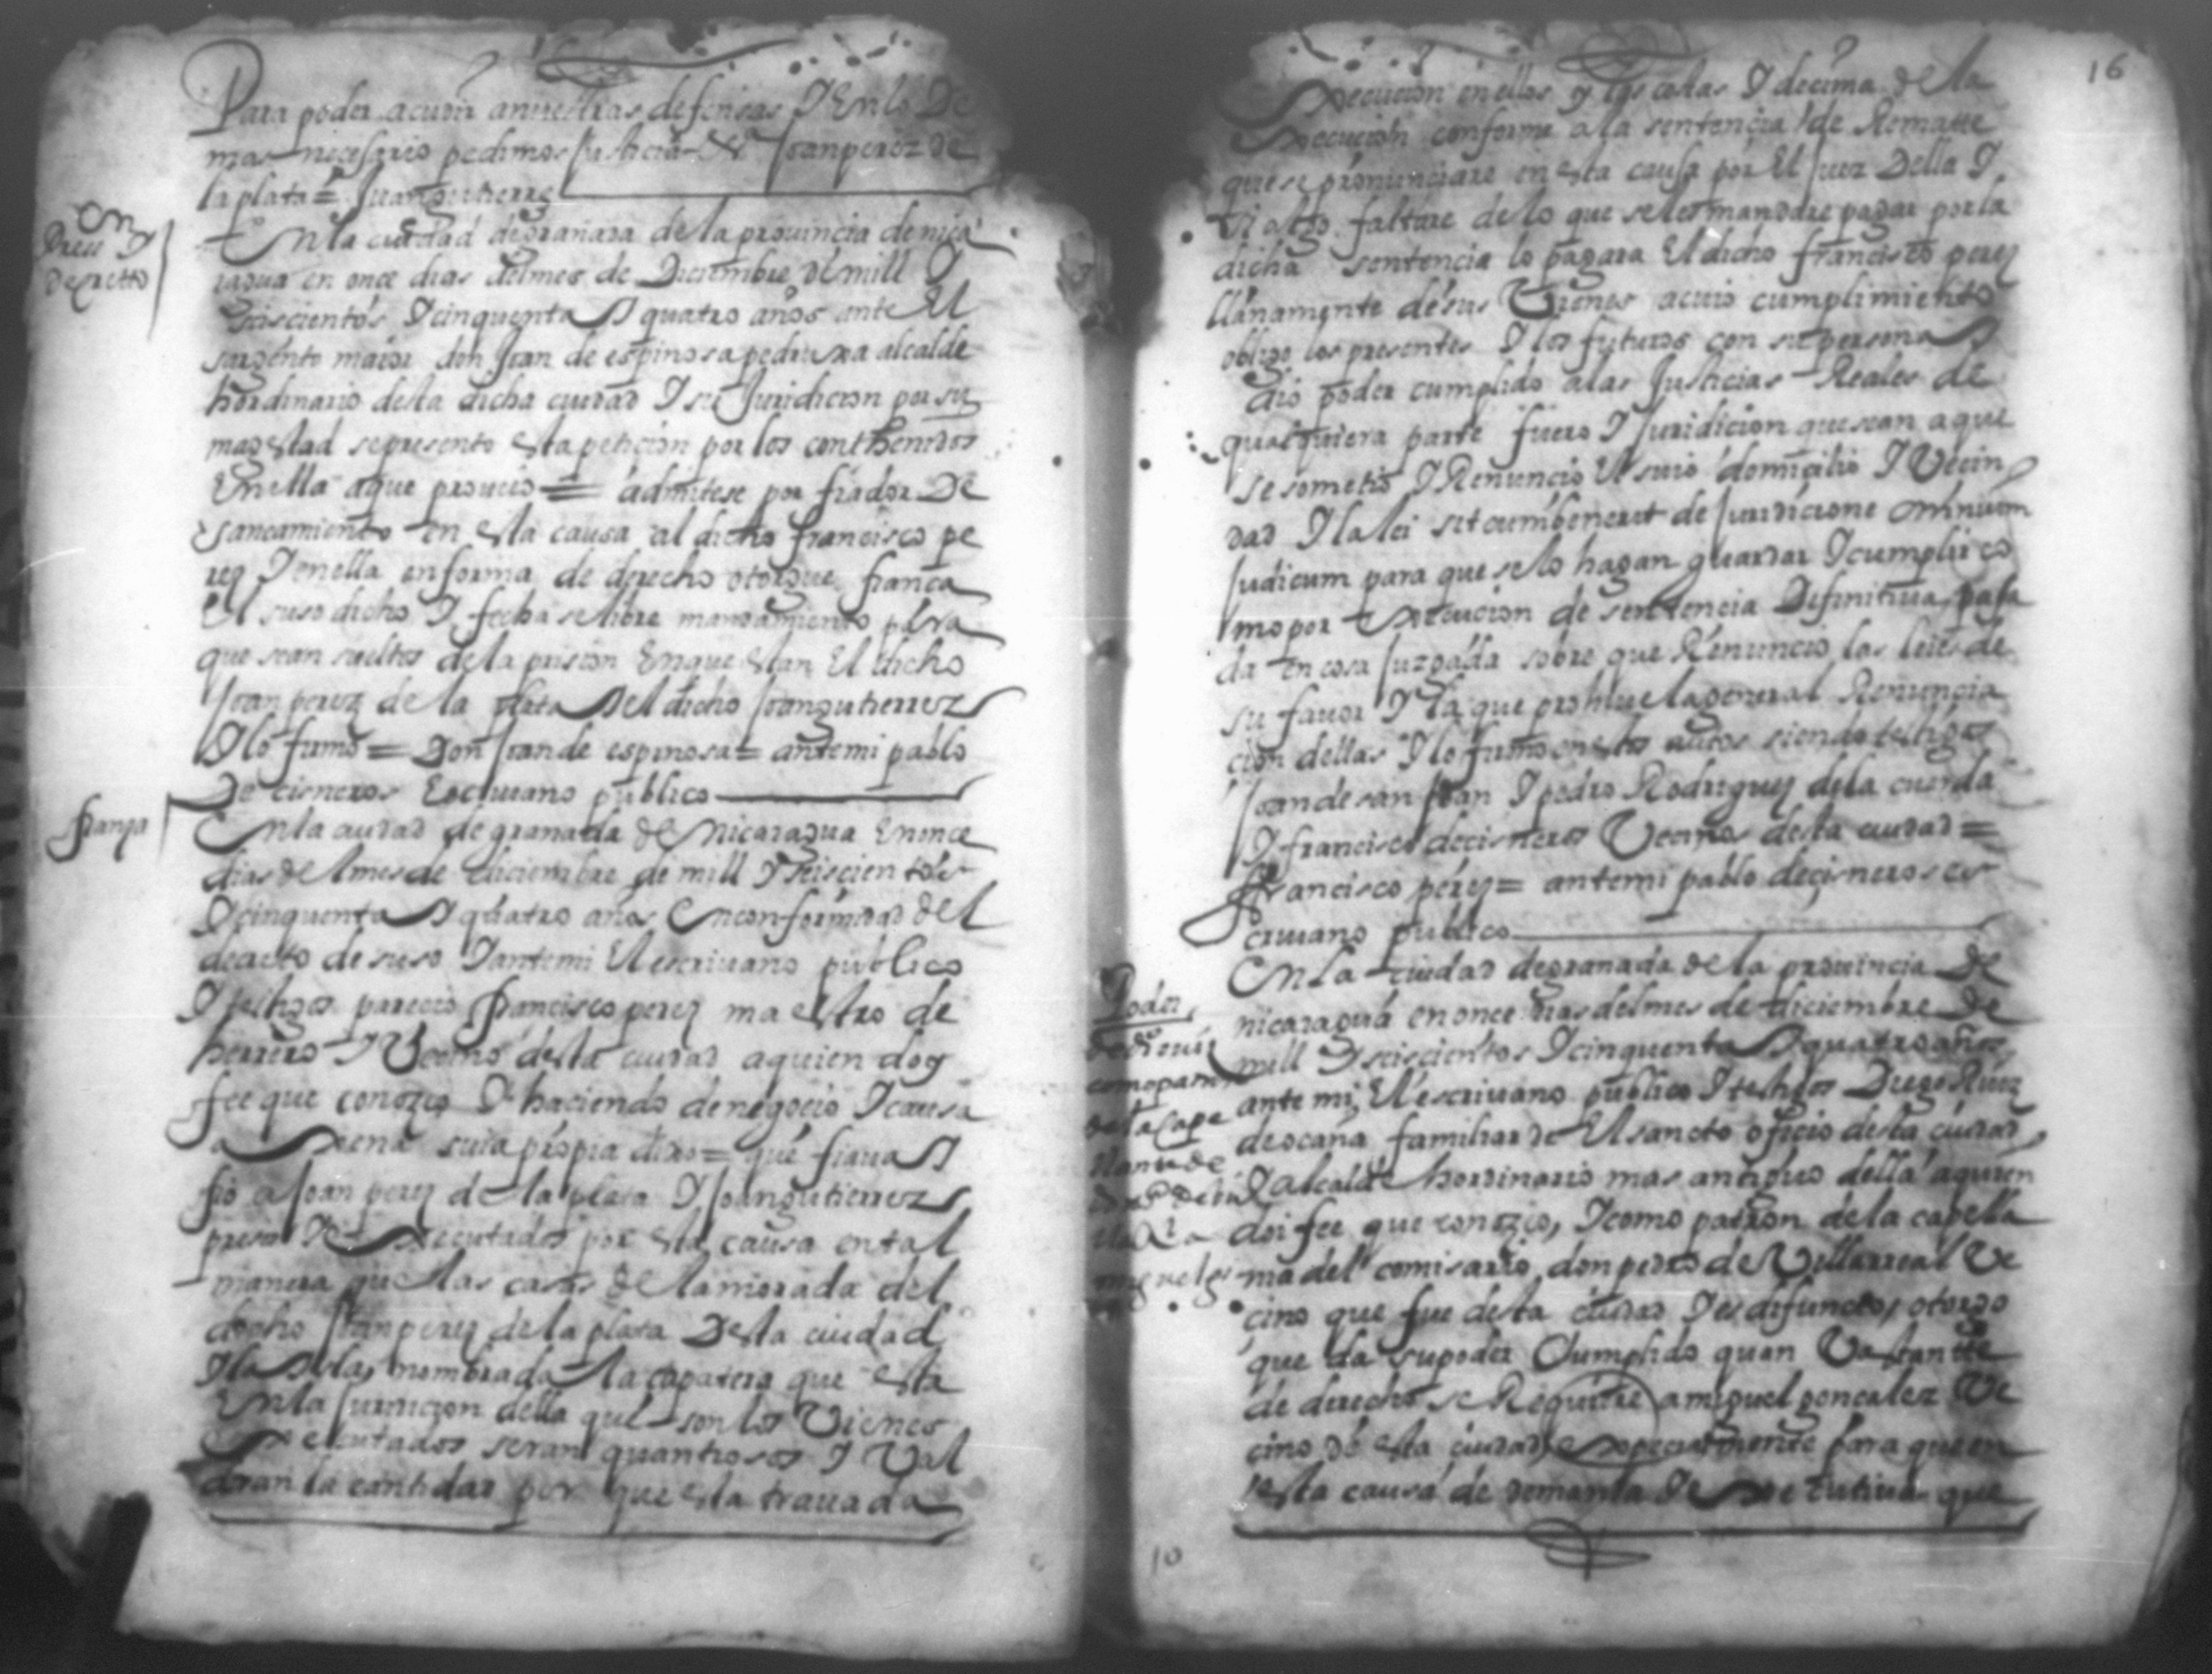 Para poder acudir a nuestras defensas Y En lo De
mas nicesario pedimos Justicia & Joan perez de
la plata = Juan gutierrez
En la ciudad de granada de la prouincia de nica
ragua en once dias del mes de Diciembre de mill Y
seiscientos Y cinquenta Y quatro años ante El
sargento maior don Joan de espinosa pedruxa alcalde
hordinario desta dicha ciudad Y su Juridicion por su
magestad se presento esta peticion por los conthenidos
En ella a que proueio = admitese por fiador De
saneamiento en esta causa al dicho francisco pe
rez Y en ella en forma de derecho otorgue fianca
El suso dicho Y fecha se libre mandamiento para
que sean sueltos de la prision En que estan El dicho
Joan perez de la plata Y el dicho Joan gutierrez
Y lo firmo = Don Joan de espinosa = ante mi pablo
De cisneros Escriuano publico
fianza
En la ciudad de granada de Nicaragua En once
dias del mes de diciembre de mill Y seiscientos
Y cinquenta Y quatro años En conformidad del
decreto de suso Y ante mi El escriuano publico
Y testigos parecio francisco perez maestro de
herrero Y Vecino desta ciudad a quien doy
fee que conozco Y haciendo de negocio Y causa
a Xena suia propia dixo = que fiaua Y
fio a Joan perez de la plata Y Joan gutierrez
presos Y Executados por esta causa en tal
manera que las casas de la morada del
dicho Joan perez de la plata Desta ciudad
Y la Ysla nombrada la capatera que esta
En la Juridicion della que son los Vienes
Executados seran quantiosos Y Val
dran la cantidad por que esta trauada
16
Execucion en ellos y las costas Y decima de la
Execucion conforme a la sentencia de Rematte
que se pronunciare en esta causa por El Juez Della Y
si algo faltare de lo que se les mandare pagar por la
dicha sentencia lo pagara El dicho francisco perez
llanamente de sus Vienes a cuio cumplimiento
obligo los presentes Y los futuros con su persona Y
dio poder cumplido a las Justicias Reales de
qualquiera parte fuero Y Juridicion que sean a que
se sometio Y Renuncio El suio domicilio Y Vecin
dad Y la lei sit cumbenerit de Juridicione Omnium
Judicum para que se lo hagan guardar Y cumplir co
mo por Execucion de sentencia Definitiua pasa
da en cosa Juzgada sobre que Renuncio las leies de
su fauor Y la que prohiue la general Renuncia
cion dellas Y lo firmo en estos autos siendo testigos
Joan de san Joan Y pedro Rodriguez de la cuerda
Y francisco de cisneros Vecinos desta ciudad =
francisco perez = ante mi pablo de cisneros es
criuano publico
Poder
En la ciudad de granada de la prouincia De
nicaragua en once dias del mes de diciembre De
mill Y seiscientos Y cinquenta Y quatro años
ante mi El escriuano publico Y testigos Diego Ruiz
de ocaña familiar de El sancto oficio desta ciudad
Y alcalde hordinario mas antiguo della a quien
doi fee que conozco, Y como patron de la capella
nia del comisario don pedro de Villarreal Ve
cino que fue desta ciudad Y es difuncto, otorgo
que da su poder Cumplido quan Vastantte
de derecho se Requiere a miguel goncalez Ve
cino de esta ciudad especialmente para que en
esta causa de demanda Executiua que
10